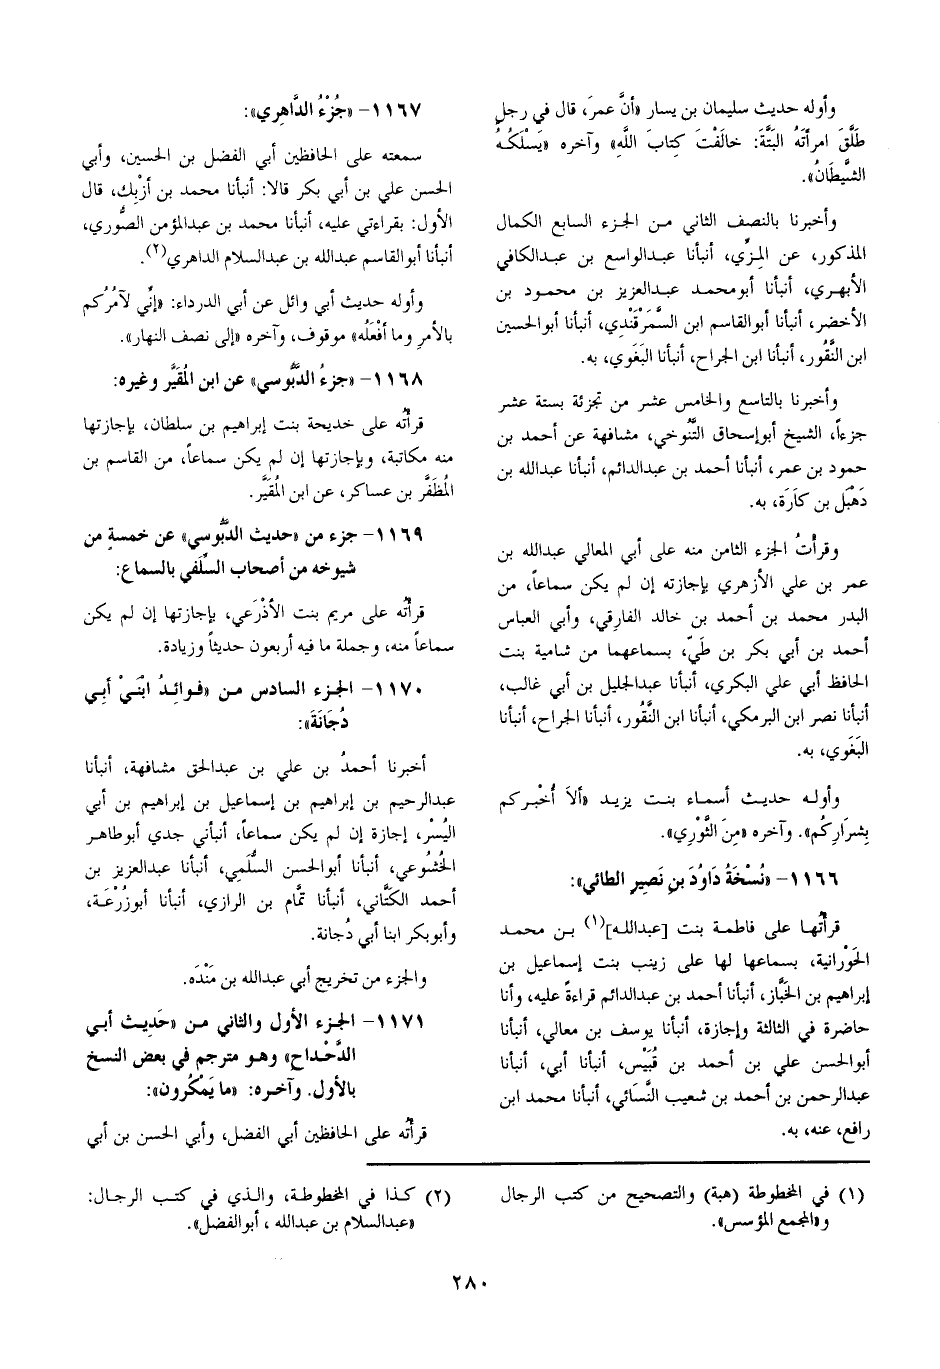 وأوله حديث سليمان بن يسار «أنَّ عمرَ، قال في رجلٍ
طَلَّقَ امرأتَهُ البَتَّةَ: خالَفْتَ كِتابَ اللَّهِ» وآخره «يَسْلَكُهُ
الشَّيطَانُ».
وأخبرنا بالنصف الثاني من الجزء السابع الكمال
المذكور، عن المِزِّي، أنبأنا عبدالواسع بن عبدالكافي
الأبهري، أنبأنا أبومحمد عبدالعزيز بن محمود بن
الأخضر، أنبأنا أبوالقاسم ابن السَّمَرْقَندِي، أنبأنا أبوالحسين
ابن النَّقُور، أنبأنا ابن الجراح، أنبأنا البَغَوي، به.
وأخبرنا بالتاسع والخامس عشر من تجزئة بستة عشر
جزءاً، الشيخ أبوإسحاق التَّنُوخي، مشافهة عن أحمد بن
حمود بن عمر، أنبأنا أحمد بن عبدالدائم، أنبأنا عبدالله بن
دَهْبَل بن كارَة، به.
وقرأتُ الجزء الثامن منه على أبي المعالي عبدالله بن
عمر بن علي الأزهري بإجازته إن لم يكن سماعاً، من
البدر محمد بن أحمد بن خالد الفارِقي، وأبي العباس
أحمد بن أبي بكر بن طَيّ، بسماعهما من شامية بنت
الحافظ أبي علي البكري، أنبأنا عبدالجليل بن أبي غالب،
أنبأنا نصر ابن البرمكي، أنبأنا ابن النَّقُور، أنبأنا الجراح، أنبأنا
البَغَوي، به.
وأوله حديث أسماء بنت يزيد «ألاَ أُخْبِركم
بِشرَارِكُم». وآخره «مِنَ الثَّوْرِي».
١١٦٦- «نُسْخَةُ دَاوُدَ بنِ نَصيرٍ الطائي»:
قرأتُها على فاطمة بنت [عبدالله](١) بن محمد
الحَوْرانية، بسماعها لها على زينب بنت إسماعيل بن
إبراهيم بن الخَبَّاز، أنبأنا أحمد بن عبدالدائم قراءةً عليه، وأنا
حاضرة في الثالثة وإجازة، أنبأنا يوسف بن معالي، أنبأنا
أبوالحسن علي بن أحمد بن قُبَيْس، أنبأنا أبي، أنبأنا
عبدالرحمن بن أحمد بن شعيب النَّسَائي، أنبأنا محمد ابن
رافع، عنه، به.
(١) في المخطوطة (هبة) والتصحيح من كتب الرجال
و«المجمع المؤسس».
١١٦٧- «جُزْءُ الدَّاهِري»:
سمعته على الحافظين أبي الفضل بن الحسين، وأبي
الحسن علي بن أبي بكر قالا: أنبأنا محمد بن أزْبِك، قال
الأول: بقراءتي عليه، أنبأنا محمد بن عبدالمؤمن الصُّوري،
أنبأنا أبوالقاسم عبدالله بن عبدالسلام الداهري(٢).
وأوله حديث أبي وائل عن أبي الدرداء: «إنِّي لآمُرُكم
بالأمرِ وما أفْعَلُه» موقوف، وآخره «إلى نصف النهار».
١١٦٨- «جزءُ الدَّبُّوسي» عن ابن المُقَيَّر وغيره:
قرأتُه على خديجة بنت إبراهيم بن سلطان، بإجازتها
منه مكاتبة، وبإجازتها إن لم يكن سماعاً، من القاسم بن
المُظَفَّر بن عساكر، عن ابن المُقَيَّر.
١١٦٩- جزء من «حديث الدَّبُّوسي» عن خمسةٍ من
شيوخه من أصحاب السِّلَفي بالسماع:
قرأتُه على مريم بنت الأذْرَعي، بإجازتها إن لم يكن
سماعاً منه، وجملة ما فيه أربعون حديثاً وزيادة.
١١٧٠- الجزء السادس من «فوائدُ ابْنَيْ أبِي
دُجَانَة»:
أخبرنا أحمدُ بن علي بن عبدالحق مشافهة، أنبأنا
عبدالرحيم بن إبراهيم بن إسماعيل بن إبراهيم بن أبي
اليُسْر، إجازة إن لم يكن سماعاً، أنبأني جدي أبوطاهر
الخُشُوعي، أنبأنا أبوالحسن السُّلَمِي، أنبأنا عبدالعزيز بن
أحمد الكَتَّاني، أنبأنا تمَّام بن الرازي، أنبأنا أبوزُرْعَة،
وأبوبكر ابنا أبي دُجانة.
والجزء من تخريج أبي عبدالله بن مَنْدَه.
١١٧١- الجزء الأول والثاني من «حَدِيث أبي
الدَّحْداحِ» وهو مترجم في بعض النسخ
بالأول. وآخره: «ما يَمْكُرون»:
قرأتُه على الحافظين أبي الفضل، وأبي الحسن بن أبي
(٢) كذا في المخطوطة، والذي في كتب الرجال:
«عبدالسلام بن عبدالله ، أبوالفضل».
٢٨٠